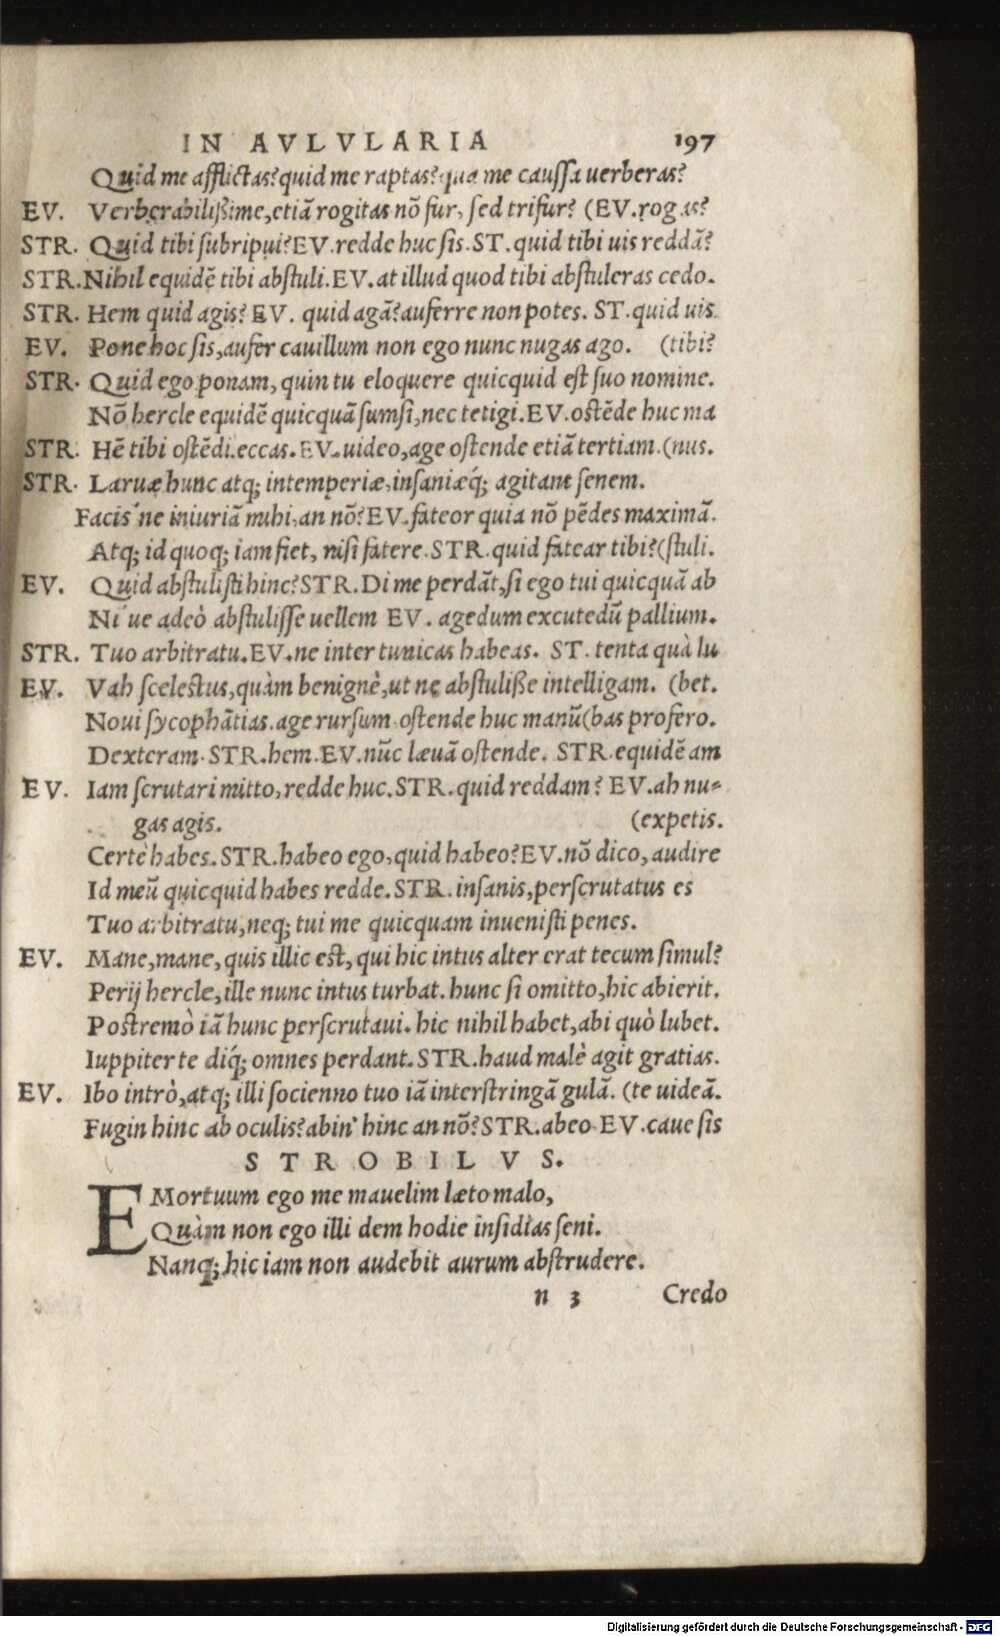 IN AVLVLARIA 197
Quid me afflictas? quid me raptas? qua me caussa uerberas?
EV. Verberabilißime, etiã rogitas nõ fur, sed trifur? (EV. rogas?
STR. Quid tibi subripui? EV. redde huc sis. ST. quid tibi uis reddã?
STR. Nihil equidẽ tibi abstuli. EV. at illud quod tibi abstuleras cedo.
STR. Hem quid agis? EV. quid agã? auferre non potes. ST. quid uis
EV. Pone hoc sis, aufer cauillum non ego nunc nugas ago. (tibi?
STR. Quid ego ponam, quin tu eloquere quicquid est suo nomine.
Nõ hercle equidẽ quicquã sumsi, nec tetigi. EV. ostẽde huc ma
STR. Hẽ tibi ostẽdi. eccas. EV. uideo, age ostende etiã tertiam. (nus.
STR. Laruæ hunc atq; intemperiæ, insaniæq́; agitant senem.
Facis'ne iniuriã mihi, an nõ? EV. fateor quia nõ pẽdes maximã.
Atq; id quoq; iam fiet, nisi fatere. STR. quid fatear tibi? (stuli.
EV. Quid abstulisti hinc? STR. Di me perdãt, si ego tui quicquã ab
Ni'ue adeò abstulisse uellem EV. agedum excutedũ pallium.
STR. Tuo arbitratu. EV. ne inter tunicas habeas. ST. tenta quà lu
EV. Vah scelestus, quàm benignè, ut ne abstuliße intelligam. (bet.
Noui sycophãtias. age rursum ostende huc manũ (bas profero.
Dexteram. STR. hem. EV. nũc læuã ostende. STR. equidẽ am
EV. Iam scrutari mitto, redde huc. STR. quid reddam? EV. ah nu-
gas agis. (expetis.
Certè habes. STR. habeo ego, quid habeo? EV. nõ dico, audire
Id meũ quicquid habes redde. STR. insanis, perscrutatus es
Tuo arbitratu, neq; tui me quicquam inuenisti penes.
EV. Mane, mane, quis illic est, qui hic intus alter erat tecum simul?
Perij hercle, ille nunc intus turbat. hunc si omitto, hic abierit.
Postremò iã hunc perscrutaui. hic nihil habet, abi quò lubet.
Iuppiter te diq́; omnes perdant. STR. haud malè agit gratias.
EV. Ibo intrò, atq; illi socienno tuo iã interstringã gulã. (te uideã.
Fugin hinc ab oculis? abin' hinc an nõ? STR. abeo EV. caue sis
STROBILVS.
EMortuum ego me mauelim læto malo,
Quàm non ego illi dem hodie insidias seni.
Nanq; hic iam non audebit aurum abstrudere.
n 3 Credo
Digitalisierung gefördert durch die Deutsche Forschungsgemeinschaft - DFG